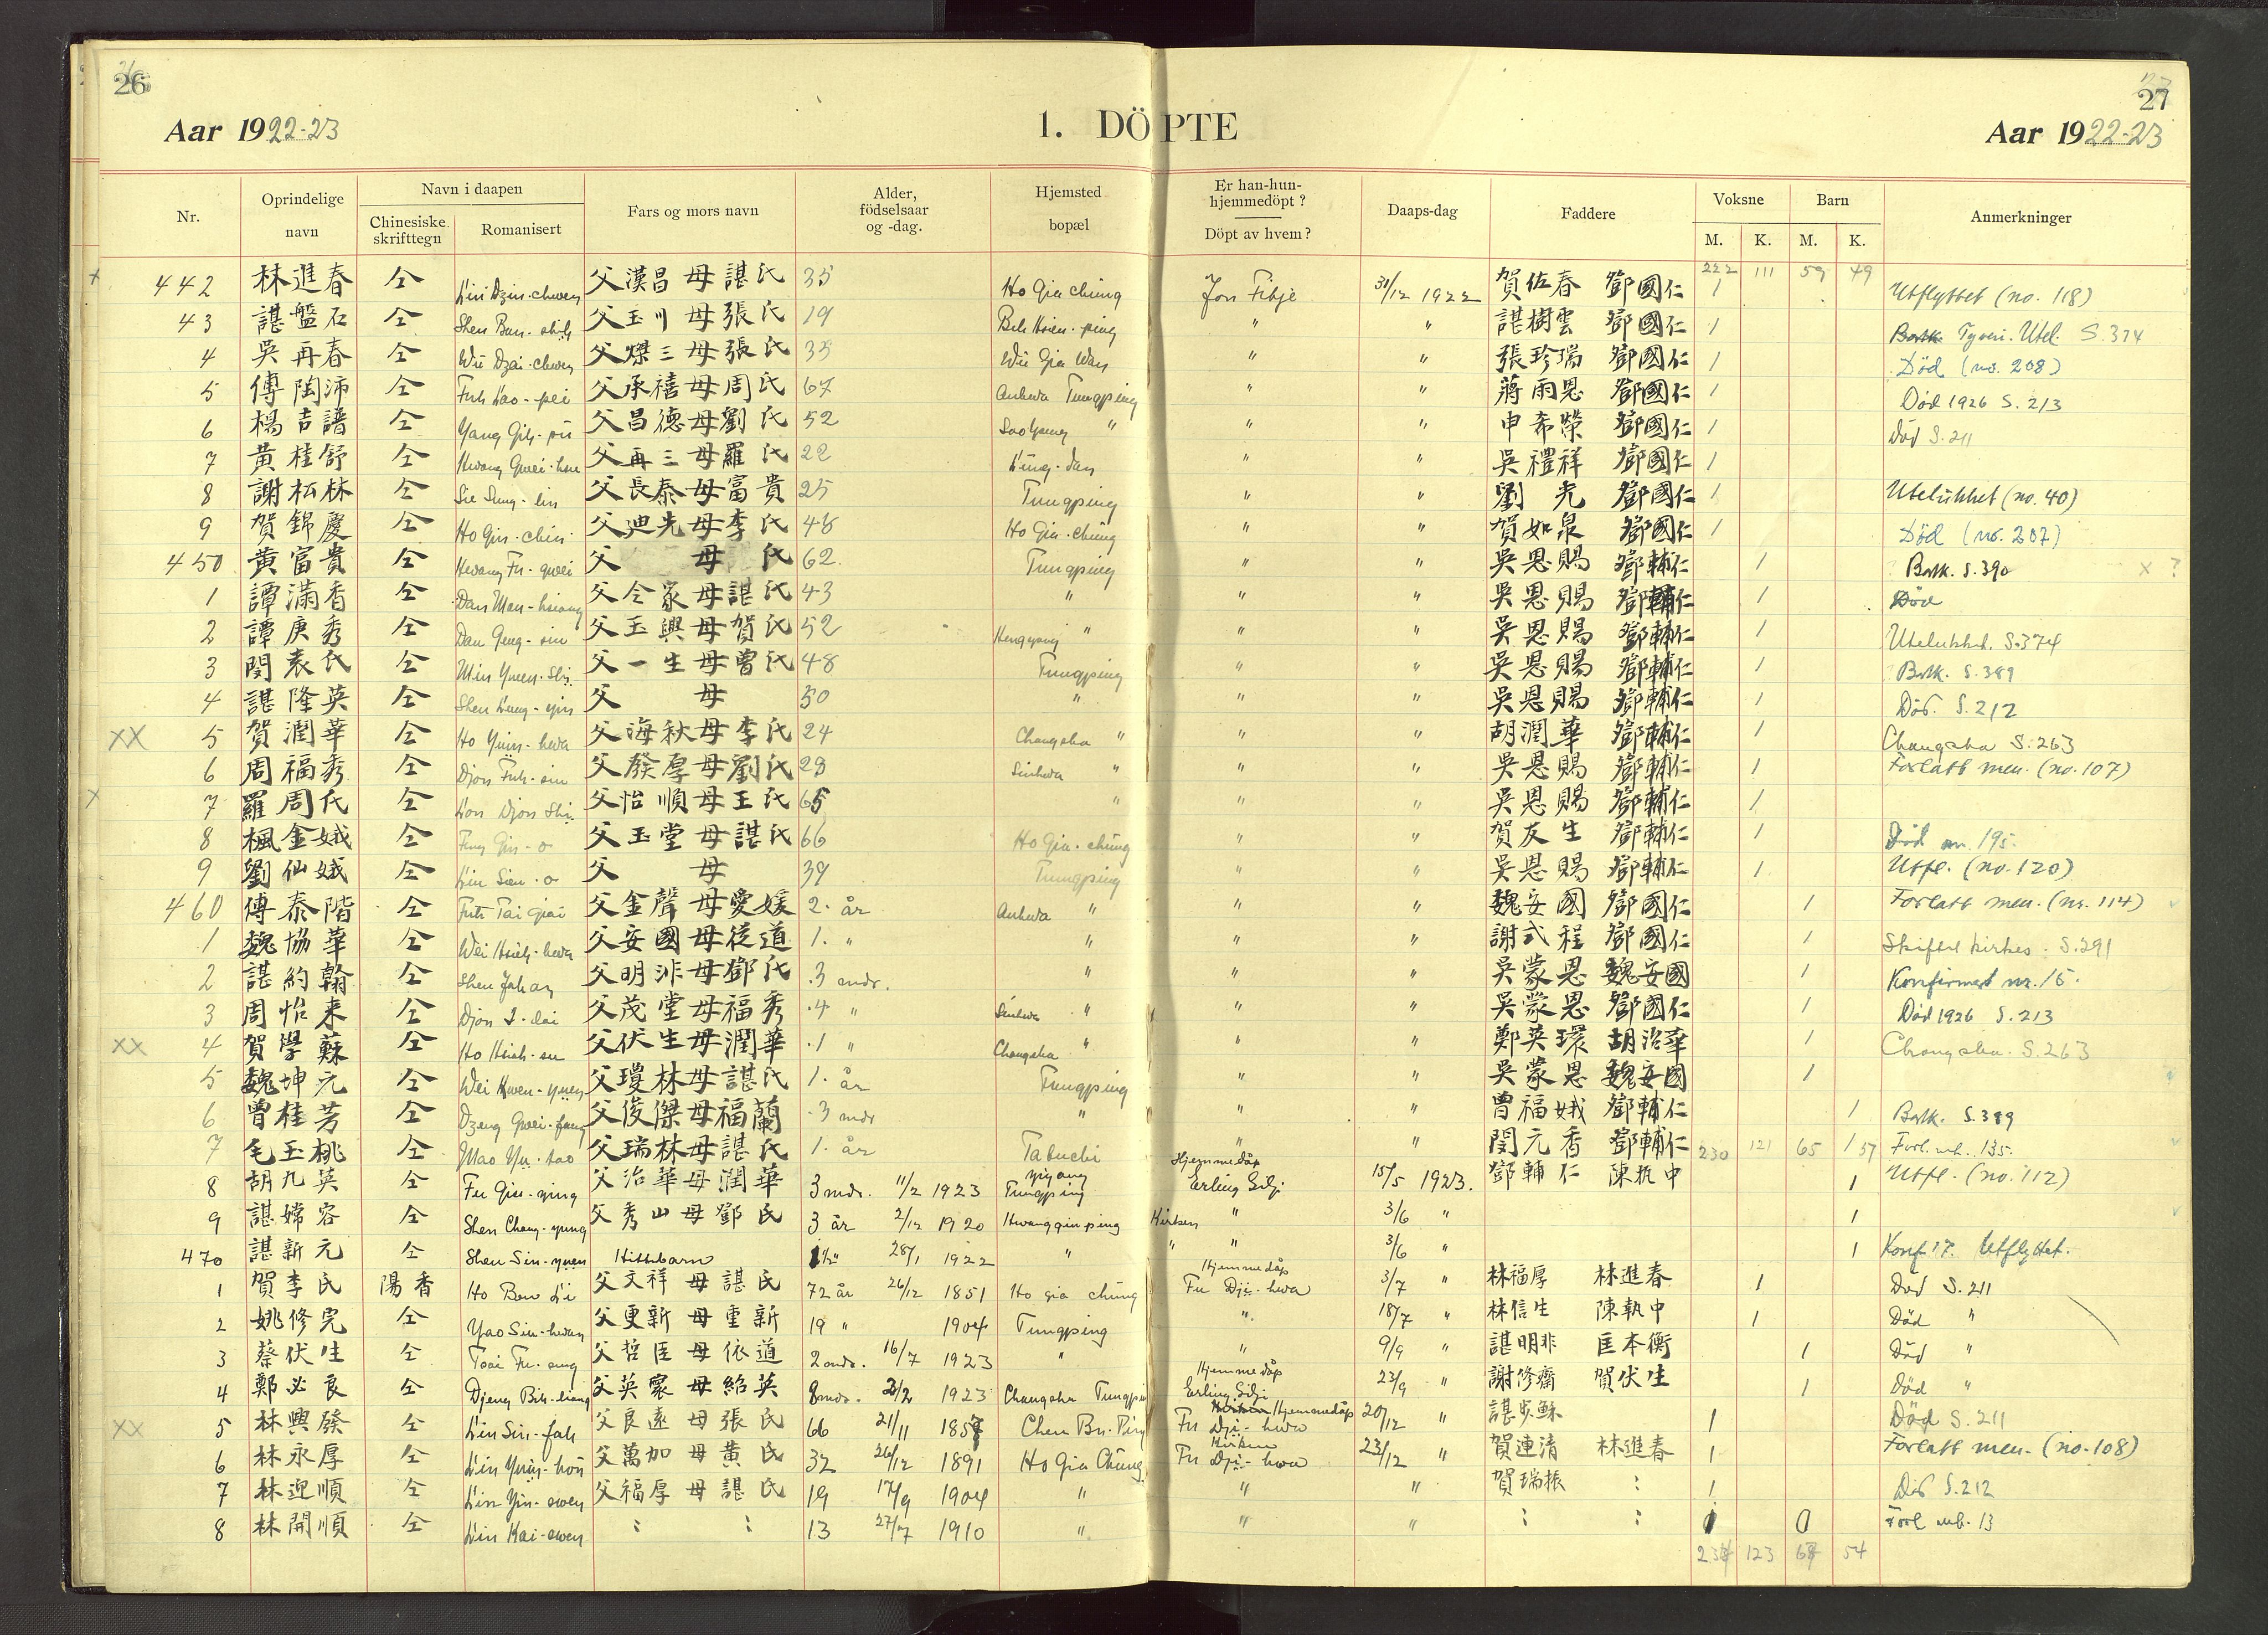 26
27
Aar 1922-23
1. DÖPTE
Aar 1922-23
Nr. Oprindelige navn Navn i daapen Chinesiske skrifttegn Romanisert Fars og mors navn Alder, födselsaar og -dag. Hjemsted bopæl Er han-hun-hjemmedöpt? Döpt av hvem? Daaps-dag Faddere Voksne M. K. Barn M. K. Anmerkninger
222 111 59 49
442 林進春 仝 Lin Dzin-chwen 父漢昌母諶氏 35 Ho Gia chüng Jon Fitje 31/12 1922 賀佐春 鄧國仁 1 Utflyttet (no. 118)
43 諶盤石 仝 Shen Ban-shih 父玉川母張氏 19 " " 諶樹雲 鄧國仁 1 Tyveri. Utel. S. 374
4 吳再春 仝 Wu Dzai-chwen 父燦三母張氏 35 Wu Gia Wan " " 張珍瑞 鄧國仁 1 Död (no. 208)
5 傅陶沛 仝 Fuh Tao-pei 父承禧母周氏 67 Anhwa Tungping " " 蔣雨恩 鄧國仁 1 Död 1926 S. 213
6 楊吉譜 仝 父昌德母劉氏 52 " " " 申希榮 鄧國仁 1 Död S. 211
7 黃桂舒 仝 Hwang Gwei-hsu 父再三母羅氏 22 " " 吳禮祥 鄧國仁 1
8 謝松林 仝 Sie Sung-lin 父長泰母富貴 25 Tungping " " 劉光 鄧國仁 1 Utelukket (no. 40)
9 賀錦慶 仝 Ho Gin-chin 父迪光母李氏 48 Ho Gia-chüng " " 賀如泉 鄧國仁 1 Död (no. 207)
450 黃富貴 仝 Hwang Fu-gwei 父 母 氏 62 Tungping " " 吳恩賜 鄧輔仁 1 Bortk. S. 390 x ?
1 譚滿香 仝 Dan Man-hsiang 父仝家母諶氏 43 " " " 吳恩賜 鄧輔仁 1 Död
2 譚庚秀 仝 Dan Geng-siu 父玉興母賀氏 52 Hengyang " " " 吳恩賜 鄧輔仁 1 Utelukket. S. 374
3 閔袁氏 仝 Min Yuen-shi 父一生母曾氏 48 Tungping " " 吳恩賜 鄧輔仁 1 Bortk. S. 389
4 諶隆英 仝 Shen Lung-yin 父 母 30 " " " 吳恩賜 鄧輔仁 1 Död. S. 212
XX 5 賀潤華 仝 Ho Yuin-hwa 父海秋母李氏 24 Changsha " " " 胡潤華 鄧輔仁 1 Changsha S. 263
6 周福秀 仝 Djou Fuh-siu 父發厚母劉氏 28 Sinhwa " " " 吳恩賜 鄧輔仁 1 Forlatt men. (no. 107)
x 7 羅周氏 仝 Lou Djou Shi 父怡順母王氏 65 " " " 吳恩賜 鄧輔仁 1
8 楓金娥 仝 Fung Gin-o 父玉堂母諶氏 66 Ho Gia-chüng " " 賀友生 鄧輔仁 1 Död nr. 195.
9 劉仙娥 仝 Liu Sien-o 父 母 39 Tungping " " 吳恩賜 鄧輔仁 1 Utfl. (no. 120)
460 傅泰階 仝 Fuh Tai giai 父金聲母愛媛 2. år Anhwa " " " 魏安國 鄧國仁 1 Forlatt men. (nr. 114)
1 魏協華 仝 Wei Hsieh-hwa 父安國母從道 1. " " " " 謝式程 鄧國仁 1 Skiftet kirkes. S. 291
2 諶約翰 仝 Shen Johan 父明非母鄧氏 3 mdr. " " " 吳蒙恩 魏安國 1 Konfirmert nr. 15.
3 周怡來 仝 Djou I-lai 父茂堂母福秀 4 " Sinhwa " " " 吳蒙恩 鄧國仁 1 Död 1926 S. 213
XX 4 賀學蘇 仝 Ho Hsioh-su 父伏生母潤華 1 " Changsha " " " 鄭英環 胡治華 1 Changsha. S. 263
5 魏坤元 仝 Wei Kwen-yuen 父瓊林母諶氏 1. år Tungping " " 吳蒙恩 魏安國 1
6 曾桂芳 仝 Dzeng Gwei-fang 父俊傑母福蘭 3 mdr " " " 曾福娥 鄧輔仁 1 Bortk. S. 389
7 毛玉桃 仝 Mao Yu-tao 父瑞林母諶氏 1. år Tatuchi " " 閔元香 鄧輔仁 230 121 65 1 57 Forl. mb. 135.
8 胡九英 仝 Fu Giu-ying 父治華母潤華 3 mdr. 11/2 1923 Yiyang Tungping Hjemmedåp Erling Gilje 15/5 1923. 鄧輔仁 陳執中 1 Utfl. (no. 112)
9 諶嫦容 仝 Shen Chang-yung 父秀山母鄧氏 3 år 2/12 1920 Hwangginping Kirken " 3/6 " 1
470 諶新元 仝 Shen Sin-yuen Hittebarn 28/1 1922 " " " 3/6 " 1 Konf. 17. Utflyttet.
1 賀李氏 陽香 Ho Li 父文祥母諶氏 72 år 26/12 1851 Ho gia chüng Hjemmedåp Fu Dji-hwa 3/7 " 林福厚 林進春 1 Död S. 211
2 姚修完 仝 Yao Siu-hwan 父更新母重新 19 " 1904 Tungping " 18/7 " 林信生 陳執中 1 Död "
3 蔡伏生 仝 Tsai Fu-seng 父哲臣母依道 2 mdr. 16/7 1923 " " 9/9 " 諶明非 匡本衡 1 Död "
4 鄭必良 仝 Djeng Bih-liang 父英寰母紹英 8 mdr. 1923 Changsha Tungping Hjemmedåp Erling Gilje 23/9 " 謝修齋 賀伏生 1 Död "
XX 5 林興發 仝 Lin Sin-fah 父良遠母張氏 66 21/11 1857 Chen Bu-Ping Hjemmedåp Fu Dji-hwa 20/12 " 諶步蘇 1 Död S. 211
6 林永厚 仝 Lin Yuin-hou 父萬加母黃氏 32 26/12 1891 Ho Gia Chüng Kirken Fu Dji-hwa 23/12 " 賀連清 林進春 1 Forlatt men. (no. 108)
7 林迎順 仝 Lin Yin-swen 父福厚母諶氏 19 17/9 1904 " " " 賀瑞振 : 1 Död S. 212
8 林開順 仝 Lin Kai-swen : : 13 27/7 1910 " " " : : Forl mb. 13
123 54